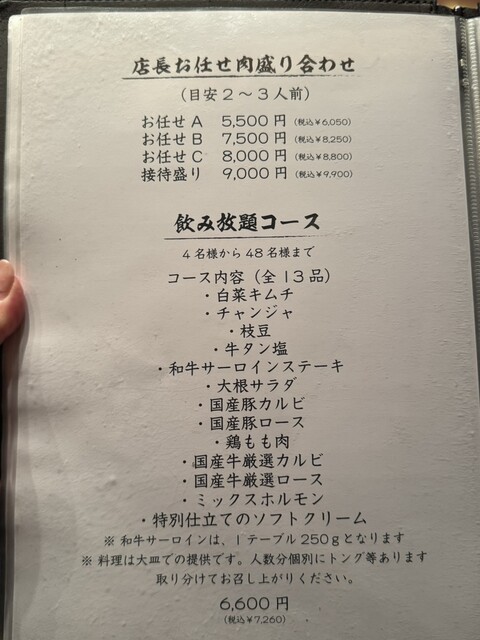 店長お任せ肉盛り合わせ
(目安2～3人前)
お任せA 5,500円 (税込¥6,050)
お任せB 7,500円 (税込¥8,250)
お任せC 8,000円 (税込¥8,800)
接待盛り 9,000円 (税込¥9,900)
飲み放題コース
4名様から48名様まで
コース内容（全13品）
・白菜キムチ
・チャンジャ
・枝豆
・牛タン塩
・和牛サーロインステーキ
・大根サラダ
・国産豚カルビ
・国産豚ロース
・鶏もも肉
・国産牛厳選カルビ
・国産牛厳選ロース
・ミックスホルモン
・特別仕立てのソフトクリーム
※ 和牛サーロインは、1テーブル250gとなります
※ 料理は大皿での提供です。人数分個別にトング等あります
取り分けてお召し上がりください。
6,600円
(税込¥7,260)